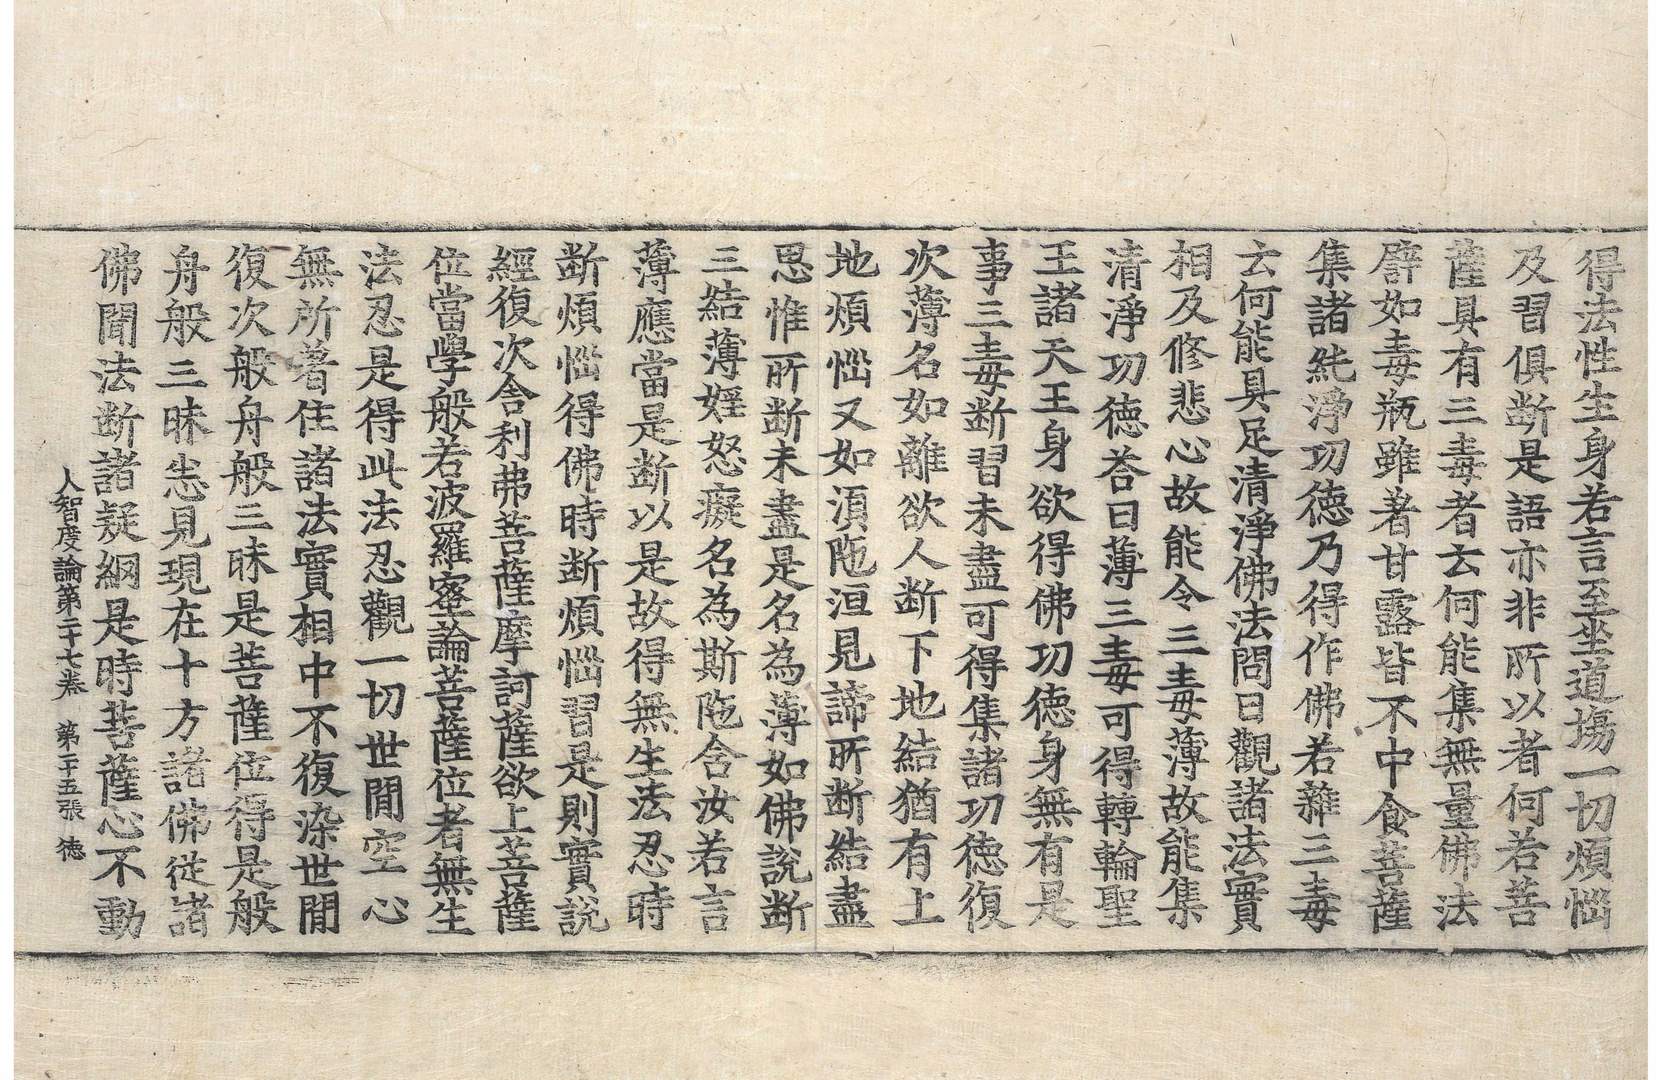 得法性生身若言至坐道場一切煩惱
及習俱断是語亦非所以者何若菩
薩具有三毒者云何能集無量佛法
譬如毒瓶雖著甘露皆不中食菩薩
集諸純淨功德乃得作佛若雜三毒
云何能具足清淨佛法問曰觀諸法實
相及修悲心故能令三毒薄故能集
清淨功德荅曰薄三毒可得轉輪聖
王諸天王身欲得佛功德身無有是
事三毒断習未盡可得集諸功德復
次薄名如離欲人断下地結猶有上
地煩惱又如湏陁洹見諦所断結盡
思惟所断未盡是名為薄如佛說断
三結薄婬怒癡名為斯陁含汝若言
薄應當是断以是故得無生法忍時
断煩惱得佛時断煩惱習是則實說
經復次舎利弗菩薩摩訶薩欲上菩薩
位當學般若波羅蜜論菩薩位者無生
法忍是得此法忍觀一切世閒空心
無所著住諸法實相中不復染世閒
復次般舟般三昧是菩薩位得是般
舟般三昧悉見現在十方諸佛從諸
佛聞法断諸疑網是時菩薩心不動
人智度論第二十七卷 第二十五張 德